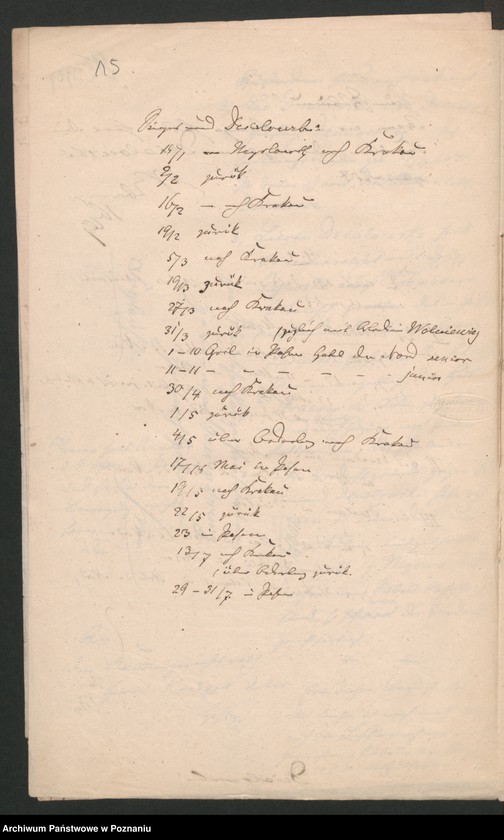 15
und
14/1 nach Krakau
2/2 zurük
16/2 — nach Krakau
19/2 zurük
5/3 nach Krakau
19/3 zurük
27/3 nach Krakau
31/3 zurük mit Wolniewicz
1–10 April in Posen Hotel du Nord senior
11–11 – – – – – – junior
30/4 nach Krakau
1/5 zurük
4/5 über nach Krakau
17/5 Mai in Posen
19/5 nach Krakau
22/5 zurük
23 in Posen
13/7 nach Krakau
über zurük.
29–31/7 in Posen
Archiwum Państwowe w Poznaniu